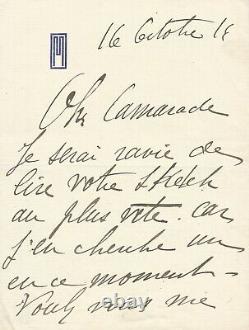 16 Octobre 16
Cher Camarade
Je serai ravie de
lire votre sketch
au plus vite. car
j'en cherche un
en ce moment -
Voulez vous me